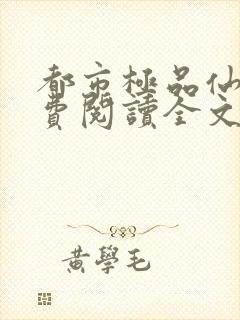 都市極品仙
費閱讀全文
黃學毛